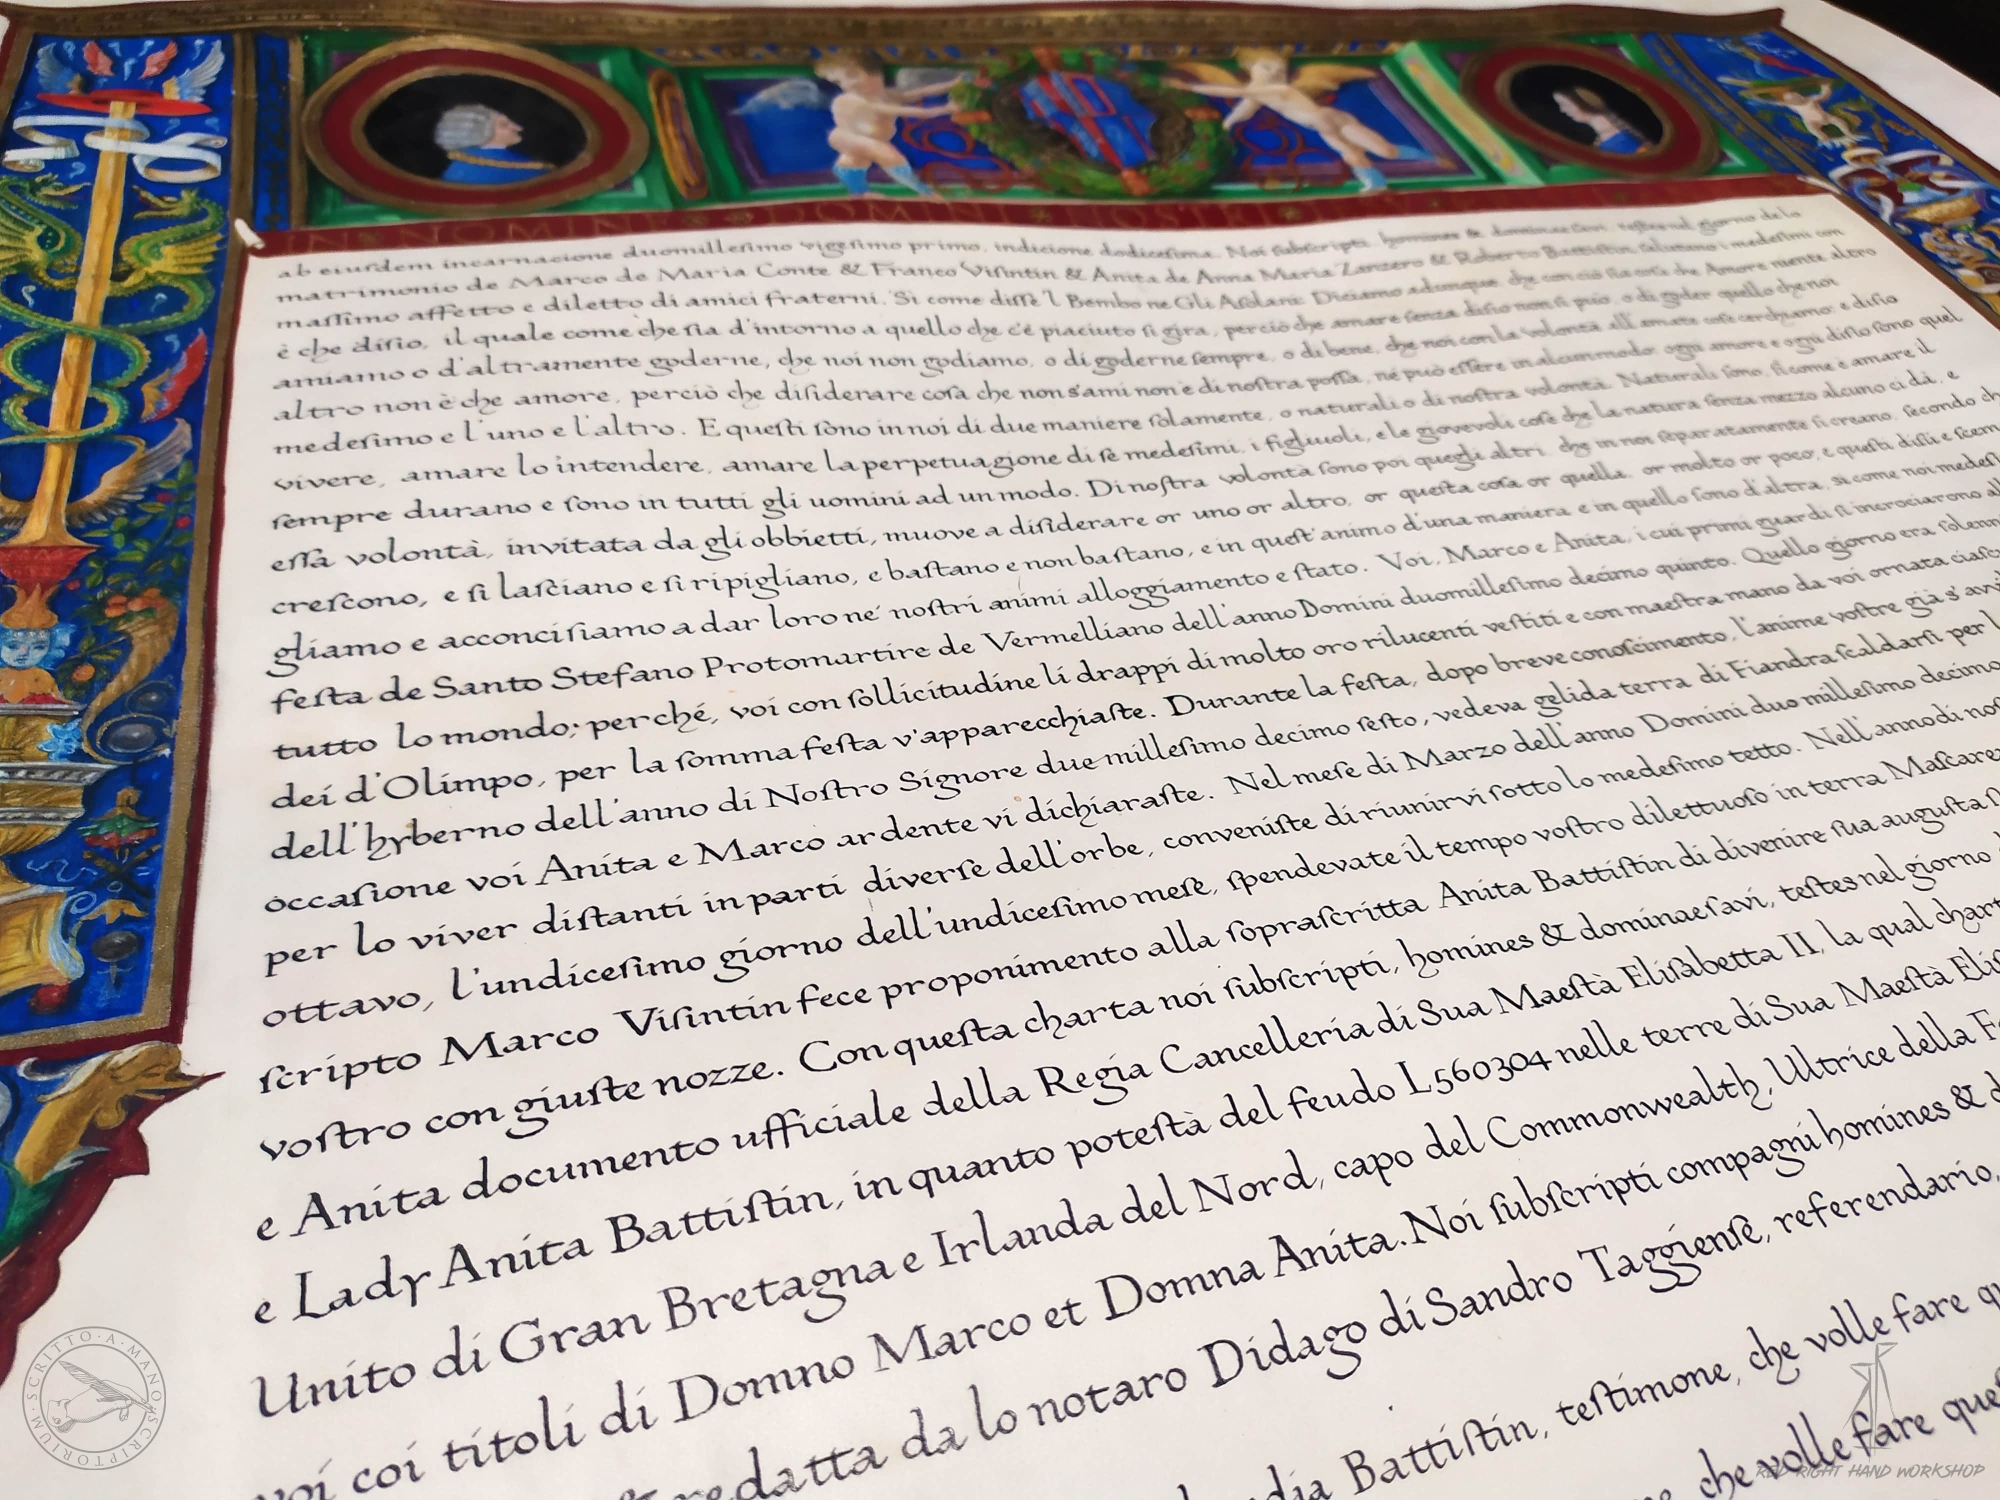 IN NOMINE DOMINI NOSTRI
ab eiuſdem incarnacione duomilleſimo vigeſimo primo, indicione dodiceſima. Noi ſubſcripti, homines & dominae ſavi, teſtes nel giorno de lo
matrimonio de Marco de Maria Conte & Franco Viſintin & Anita de Anna Maria Zanzero & Roberto Battiſtin ſalutano i medeſimi con
maſſimo affetto e diletto di amici fraterni. Si come diſſe 'l Bembo ne Gli Aſolani: Diciamo adunque, che con ciò ſia coſa che Amore niente altro
è che diſio, il quale come che ſia d'intorno a quello che c'è piaciuto ſi gira, perciò che amare ſenza diſio non ſi può, o di goder quello che noi
amiamo o d'altramente goderne, che noi non godiamo, o di goderne ſempre, o di bene, che noi con la volontà all'amate coſe cerchiamo; e diſio
altro non è che amore, perciò che diſiderare coſa che non s'ami non è di noſtra poſſa, né può eſſere in alcun modo; ogni amore e ogni diſio ſono quel
medeſimo e l'uno e l'altro. E queſti ſono in noi di due maniere ſolamente, o naturali o di noſtra volontà. Naturali ſono, ſi come è amare il
vivere, amare lo intendere, amare la perpetuagione di ſé medeſimi, i figliuoli, e le giovevoli coſe che la natura ſenza mezzo alcuno ci dà, e
ſempre durano e ſono in tutti gli uomini ad un modo. Di noſtra volontà ſono poi quegli altri, che in noi ſeparatamente ſi creano, ſecondo ch
eſſa volontà, invitata da gli obbietti, muove a diſiderare or uno or altro, or queſta coſa or quella, or molto or poco; e queſti diſii e ſcem
creſcono, e ſi laſciano e ſi ripigliano, e baſtano e non baſtano, e in queſt'animo d'una maniera e in quello ſono d'altra, si come noi medeſ
gliamo e acconci ſiamo a dar loro ne' noſtri animi alloggiamento e ſtato. Voi, Marco e Anita, i cui primi guardi ſi incrociarono al
feſta de Santo Stefano Protomartire de Vermelliano dell'anno Domini duomilleſimo decimo quinto. Quello giorno era ſolenn
tutto lo mondo; perché, voi con ſollicitudine li drappi di molto oro rilucenti veſtiti e con maeſtra mano da voi ornata ciaſc
dei d'Olimpo, per la ſomma feſta v'apparecchiaſte. Durante la feſta, dopo breve conoſcimento, l'anime voſtre già s'av
dell'hyberno dell'anno di Noſtro Signore due milleſimo decimo ſeſto, vedeva gelida terra di Fiandra ſcaldarſi per l
occaſione voi Anita e Marco ardente vi dichiaraſte. Nel meſe di Marzo dell'anno Domini duo milleſimo decimo
per lo viver diſtanti in parti diverſe dell'orbe, conveniſte di riunirvi ſotto lo medeſimo tetto. Nell'anno di noſ
ottavo, l'undiceſimo giorno dell'undiceſimo meſe, ſpendevate il tempo voſtro dilettuoſo in terra Maſcare
ſcripto Marco Viſintin fece proponimento alla ſopraſcritta Anita Battiſtin di divenire ſua auguſta
voſtro con giuſte nozze. Con queſta charta noi ſubſcripti, homines & dominae ſavi, teſtes nel giorno
e Anita documento ufficiale della Regia Cancelleria di Sua Maeſtà Eliſabetta II, la qual chart
e Lady Anita Battiſtin, in quanto poteſtà del feudo L560304 nelle terre di Sua Maeſtà Eliſ
Unito di Gran Bretagna e Irlanda del Nord, capo del Commonwealth, Ultrice della F
voi coi titoli di Domno Marco et Domna Anita. Noi ſubſcripti compagni homines &
redatta da lo notaro Didago di Sandro Taggienſe, referendario,
Battiſtin, teſtimone, che volle fare qu
che volle fare que
SCRITTO·A·MANO·SCRIPTORIUM
RED RIGHT HAND WORKSHOP